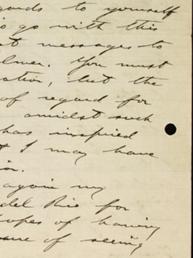 to yourself
go with this
messages to
You must
but the
of regard for
amidst such
has inspired
I may have
again my
del Rio for
hopes of having
of seeing